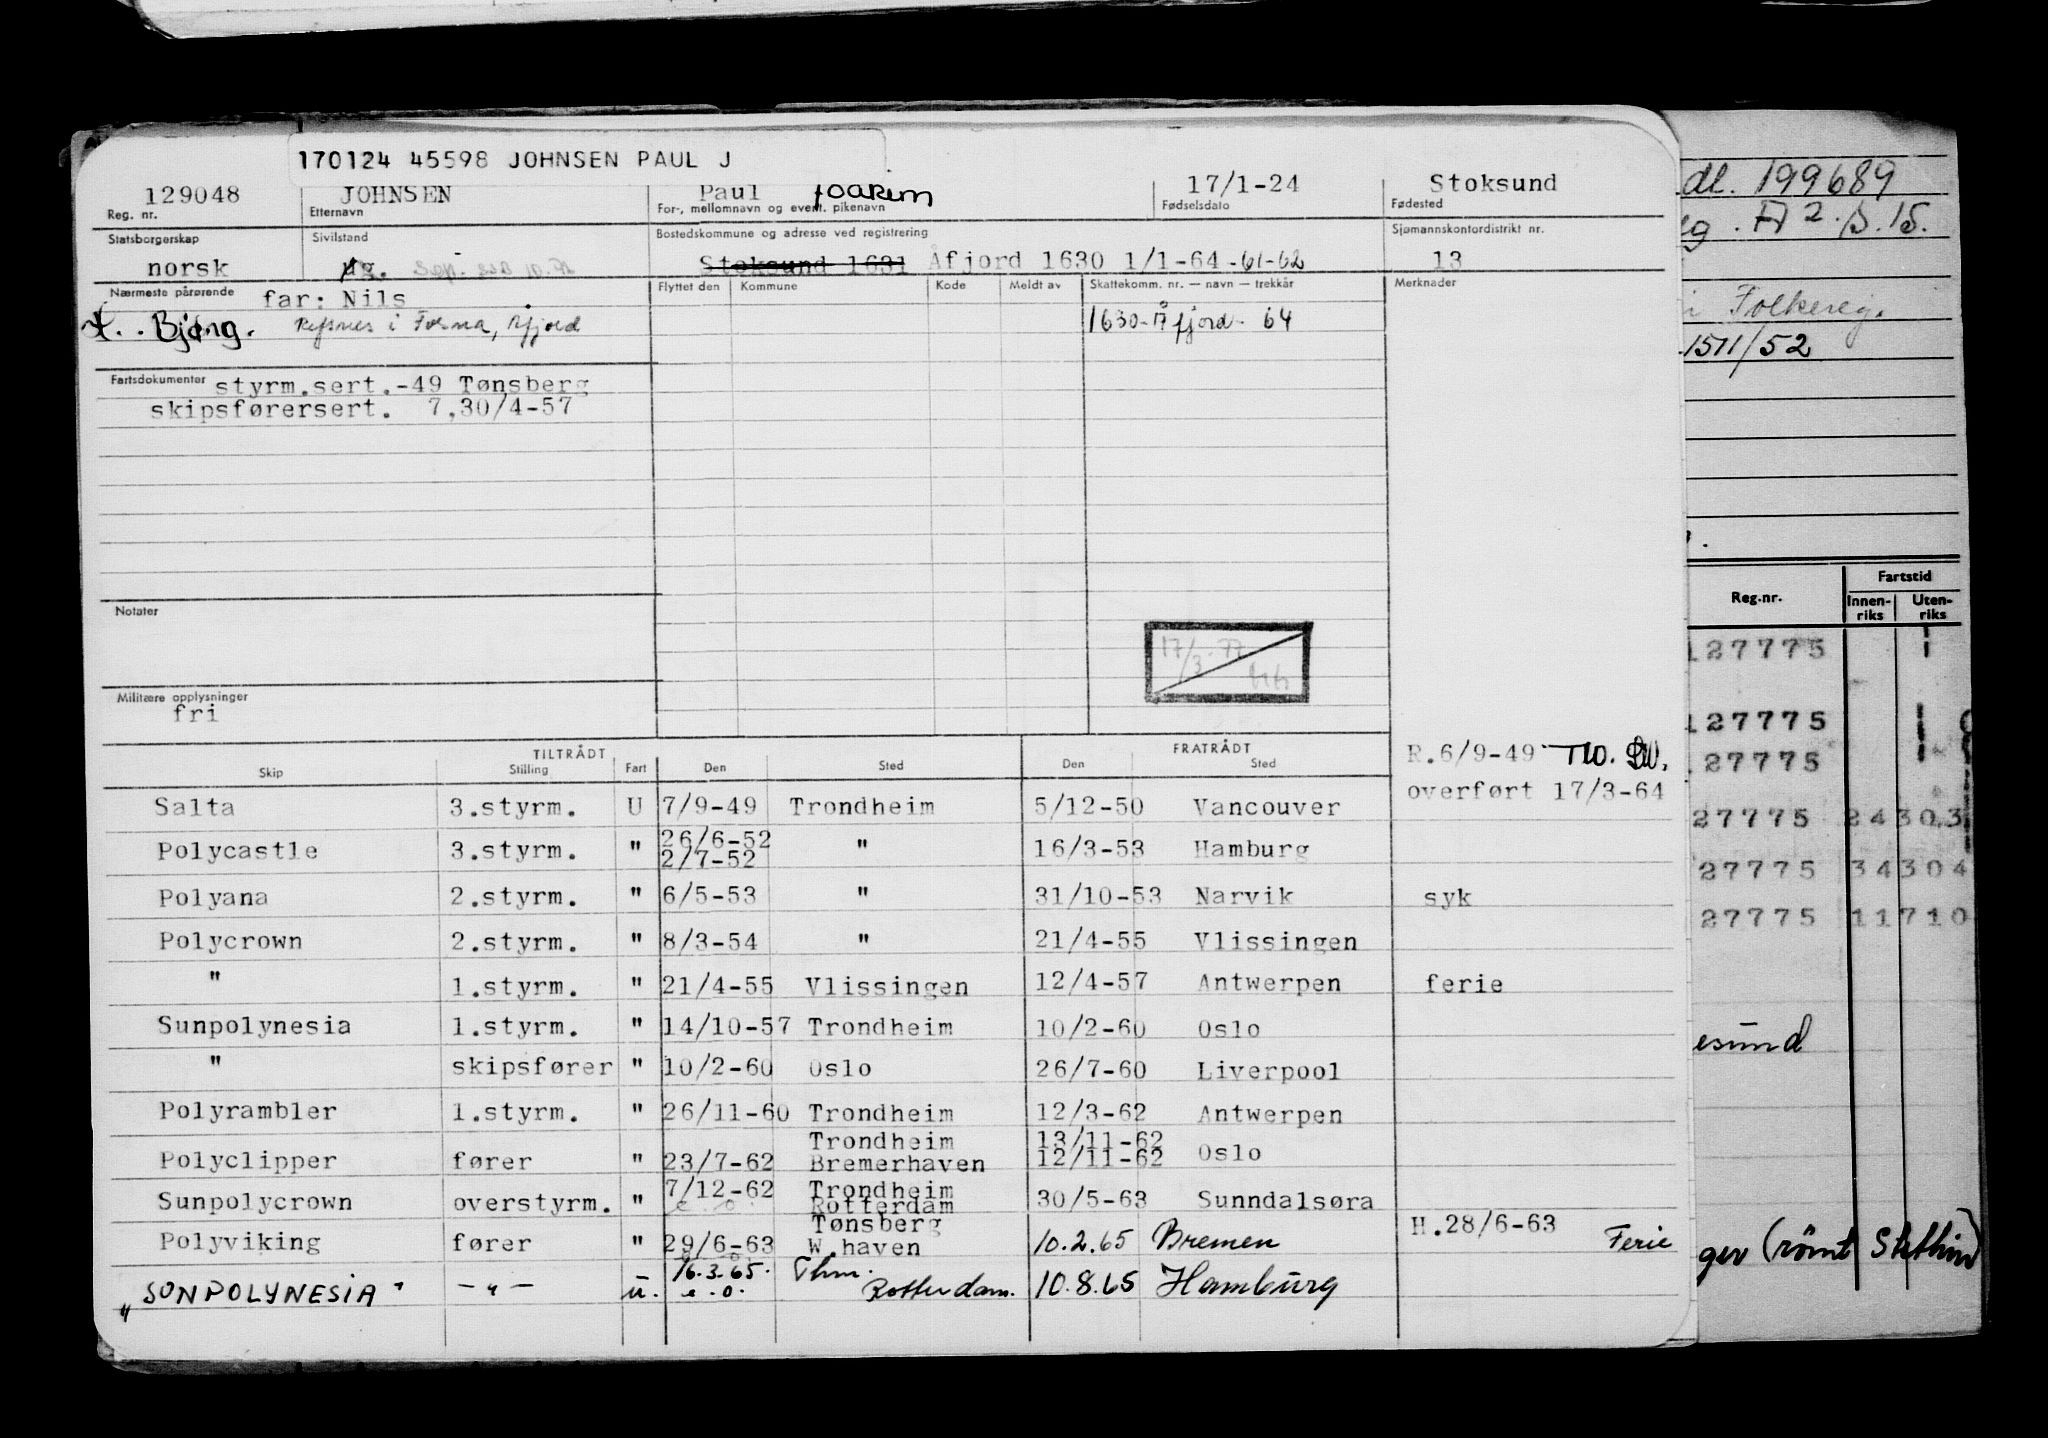 170124 45598 JOHNSEN PAUL J
129048 JOHNSEN Paul Joakim 17/1-24 Stoksund
Reg. nr. Etternavn For-, mellomnavn og event. pikenavn Fødselsdato Fødested
Statsborgerskap Sivilstand Bostedskommune og adresse ved registrering Sjømannskontordistrikt nr.
norsk ug. Sep. 10.72 Stoksund 1631 Åfjord 1630 1/1-64 -61-62 13
Nærmeste pårørende far: Nils Flyttet den Kommune Kode Meldt av Skattekomm. nr. — navn — trekkår Merknader
Bjørg. Refsnes i Fosna, Åfjord 1630-Åfjord- 64
Fartsdokumenter styrm.sert.-49 Tønsberg
skipsførersert. 7,30/4-57
Notater
17/3-77
Militære opplysninger
fri
TILTRÅDT FRATRÅDT
Skip Stilling Fart Den Sted Den Sted
R.6/9-49
overført 17/3-64
Salta 3.styrm. U 7/9-49 Trondheim 5/12-50 Vancouver
Polycastle 3.styrm. " 26/6-52 2/7-52 " 16/3-53 Hamburg
Polyana 2.styrm. " 6/5-53 " 31/10-53 Narvik syk
Polycrown 2.styrm. " 8/3-54 " 21/4-55 Vlissingen
" 1.styrm. " 21/4-55 Vlissingen 12/4-57 Antwerpen ferie
Sunpolynesia 1.styrm. " 14/10-57 Trondheim 10/2-60 Oslo
" skipsfører " 10/2-60 Oslo 26/7-60 Liverpool
Polyrambler 1.styrm. " 26/11-60 Trondheim 12/3-62 Antwerpen
Polyclipper fører " 23/7-62 Trondheim Bremerhaven 13/11-62 12/11-62 Oslo
Sunpolycrown overstyrm. " 7/12-62 e.o. Trondheim Rotterdam 30/5-63 Sunndalsøra
Polyviking fører " 29/6-63 Tønsberg W.haven 10.2.65 Bremen H.28/6-63 Ferie
"SUNPOLYNESIA" -"- u. 16.3.65. e.o. Thm. Rotterdam. 10.8.65 Hamburg
dl. 199689
Folkereg.
1511/52
Fartstid
Reg.nr. Innen-riks Uten-riks
127775
127775
27775
27775 24303
27775 34304
27775 11710
esund
ger (rømt Stettin)